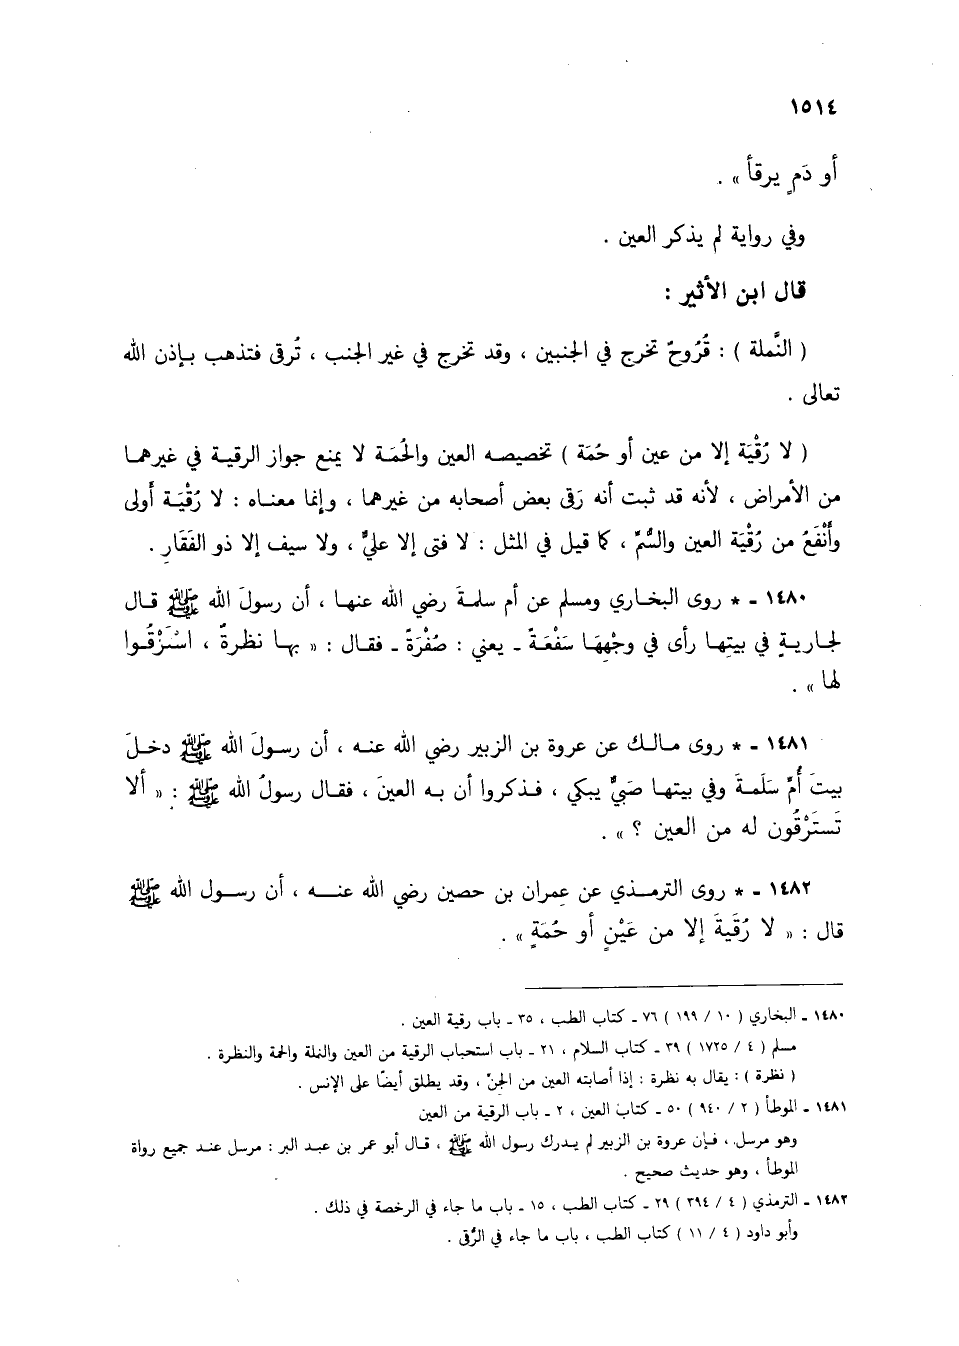 ١٥١٤
أو دَمٍ يرقأ » .
وفي رواية لم يذكر العين .
قال ابن الأثير :
( النَّملة ) : قُرُوحٌ تخرج في الجنبين ، وقد تخرج في غير الجنب ، تُرقى فتذهب بإذن الله
تعالى .
( لا رُقْيَة إلا من عين أو حُمَة ) تخصيصه العين والحُمَة لا يمنع جواز الرقية في غيرهما
من الأمراض ، لأنه قد ثبت أنه رَقى بعض أصحابه من غيرهما ، وإنما معناه : لا رُقْيَة أَولى
وأَنْفَعُ من رُقْيَة العين والسُّمِّ ، كما قيل في المثل : لا فتى إلا عليٌّ ، ولا سيف إلا ذو الفَقَارِ .
١٤٨٠ ـ * روى البخاري ومسلم عن أم سلمةَ رضي الله عنها ، أن رسولَ الله ﷺ قال
لجاريةٍ في بيتها رأى في وجهِهَا سَفْعَةً ـ يعني : صُفْرَةً ـ فقال : « بها نظرةٌ ، اسْتَرْقُوا
لها » .
١٤٨١ ـ * روى مالك عن عروة بن الزبير رضي الله عنه ، أن رسولَ الله ﷺ دخلَ
بيتَ أُمِّ سَلَمةَ وفي بيتها صَبيٌّ يبكي ، فذكروا أن به العينَ ، فقال رسولُ الله ﷺ : « ألا
تَستَرْقُون له من العين ؟ » .
١٤٨٢ ـ * روى الترمذي عن عِمران بن حصين رضي الله عنه ، أن رسول الله ﷺ
قال : « لا رُقَيةَ إلا من عَيْنٍ أو حُمَةٍ » .
١٤٨٠ ـ البخاري ( ١٠ / ١٩٩ ) ٧٦ ـ كتاب الطب ، ٣٥ ـ باب رقية العين .
مسلم ( ٤ / ١٧٢٥ ) ٣٩ ـ كتاب السلام ، ٢١ ـ باب استحباب الرقية من العين والنملة والحمة والنظرة .
( نظرة ) : يقال به نظرة : إذا أصابته العين من الجنّ ، وقد يطلق أيضًا على الإنس .
١٤٨١ ـ الموطأ ( ٢ / ٩٤٠ ) ٥٠ ـ كتاب العين ، ٢ ـ باب الرقية من العين
وهو مرسل ، فإن عروة بن الزبير لم يدرك رسول الله ﷺ ، قال أبو عمر بن عبد البر : مرسل عند جميع رواة
الموطأ ، وهو حديث صحيح .
١٤٨٢ ـ الترمذي ( ٤ / ٣٩٤ ) ٢٩ ـ كتاب الطب ، ١٥ ـ باب ما جاء في الرخصة في ذلك .
وأبو داود ( ٤ / ١١ ) كتاب الطب ، باب ما جاء في الرُّقى .